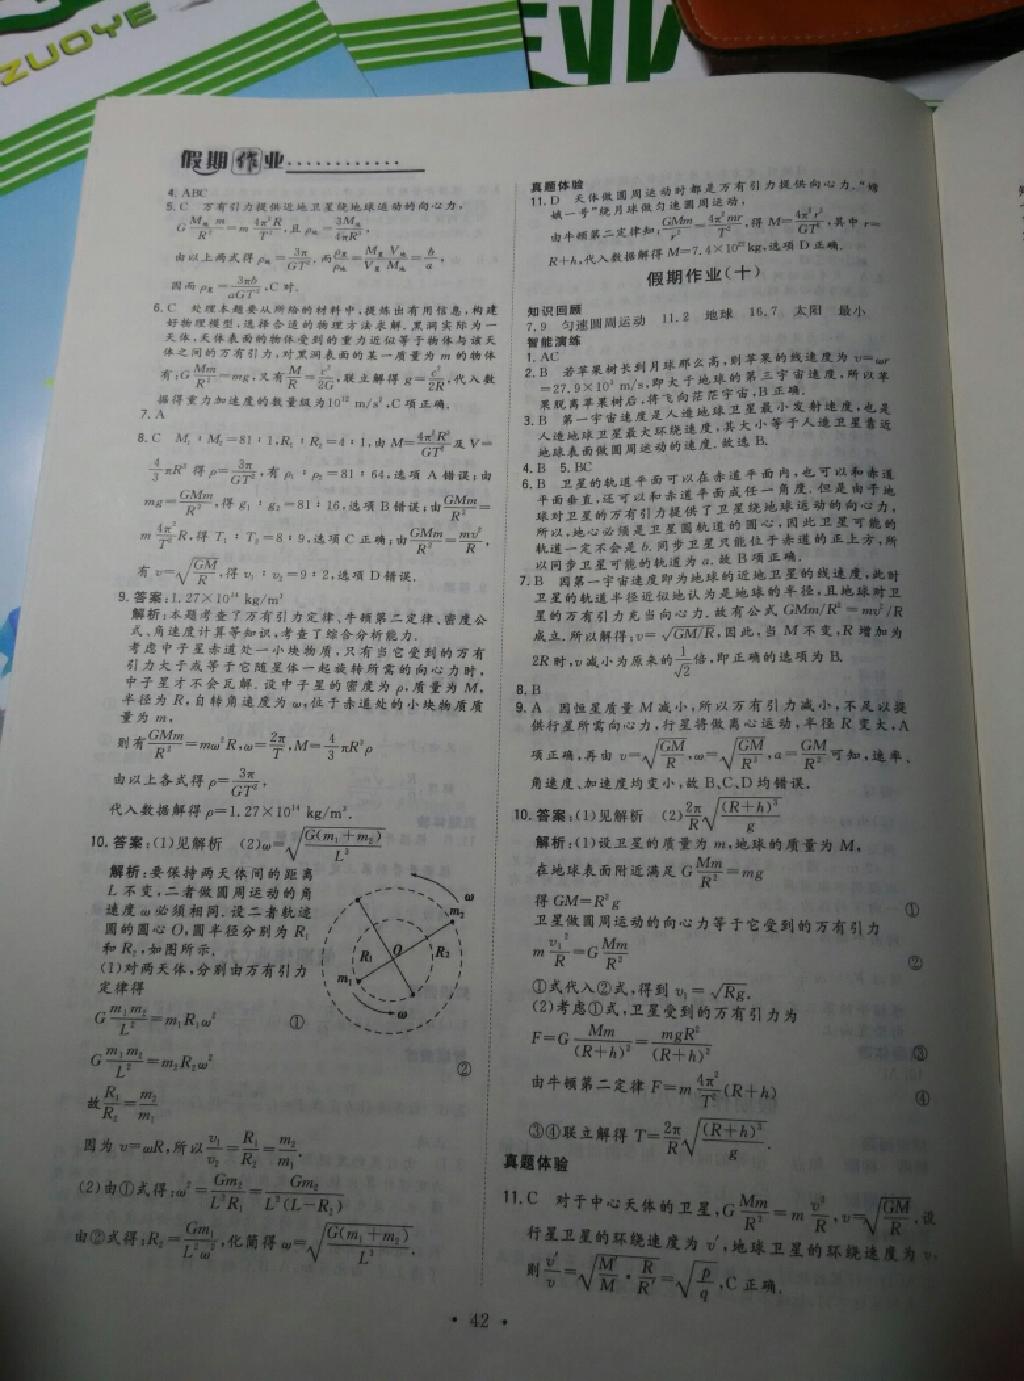 ZUOYE
业
假期作业
4. ABC
5. C 万有引力提供近地卫星绕地球运动的向心力,
G M地m/R² = m 4π²R/T², 且 ρ地 = 3M地/4πR³,
由以上两式得 ρ地 = 3π/GT², 而 ρ星/ρ地 = M星V地/V星M地 = b/a,
因而 ρ星 = 3πb/aGT², C 对.
6. C 处理本题要从所给的材料中,提炼出有用信息,构建
好物理模型,选择合适的物理方法求解.黑洞实际为一
天体,天体表面的物体受到的重力近似等于物体与该天
体之间的万有引力,对黑洞表面的某一质量为 m 的物体
有:G Mm/R² = mg,又有 M/R = c²/2G,联立解得 g = c²/2R,代入数
据得重力加速度的数量级为10¹² m/s²,C 项正确.
7. A
8. C M₁∶M₂=81∶1,R₁∶R₂=4∶1,由 M=4π²R³/GT² 及 V=
4/3 πR³ 得 ρ=3π/GT²,有 ρ₁∶ρ₂=81∶64,选项 A 错误;由
mg=GMm/R²,得 g₁∶g₂=81∶16,选项 B 错误;由 GMm/R²=
m 4π²/T² R,得 T₁∶T₂=8∶9,选项 C 正确;由 GMm/R²=mv²/R,
有 v=√(GM/R),得 v₁∶v₂=9∶2,选项 D 错误.
9. 答案:1.27×10¹⁴ kg/m³
解析:本题考查了万有引力定律、牛顿第二定律、密度公
式、角速度计算等知识,考查了综合分析能力.
考虑中子星赤道处一小块物质,只有当它受到的万有
引力大于或等于它随星体一起旋转所需的向心力时,
中子星才不会瓦解.设中子星的密度为 ρ,质量为 M,
半径为 R,自转角速度为 ω,位于赤道处的小块物质质
量为 m,
则有 GMm/R²=mω²R,ω=2π/T,M=4/3 πR³ρ
由以上各式得 ρ=3π/GT²,
代入数据解得 ρ=1.27×10¹⁴ kg/m³.
10. 答案:(1)见解析 (2)ω=√(G(m₁+m₂)/L³)
解析:要保持两天体间的距离
L 不变,二者做圆周运动的角
速度 ω 必须相同.设二者轨迹
圆的圆心 O,圆半径分别为 R₁
和 R₂,如图所示.
(1)对两天体,分别由万有引力
定律得
ω
m₂
R₁
O
R₂
m₁
ω
G m₁m₂/L²=m₁R₁ω² ①
G m₁m₂/L²=m₂R₂ω² ②
故 R₁/R₂=m₂/m₁
因为 v=ωR,所以 v₁/v₂=R₁/R₂=m₂/m₁.
(2)由①式得:ω²=Gm₂/L²R₁=Gm₂/L²(L-R₂)
由②式得:R₂=Gm₁/L²ω²,化简得 ω=√(G(m₁+m₂)/L³).
真题体验
11. D 天体做圆周运动时都是万有引力提供向心力.“嫦
娥一号”绕月球做匀速圆周运动,
由牛顿第二定律知:GMm/r²=4π²mr/T²,得 M=4π²r³/GT²,其中 r=
R+h,代入数据解得 M=7.4×10²² kg,选项 D 正确.
假期作业(十)
知识回顾
7.9 匀速圆周运动 11.2 地球 16.7 太阳 最小
智能演练
1. AC
2. B 若苹果树长到月球那么高,则苹果的线速度为 v=ωr
=27.9×10³ m/s,即大于地球的第三宇宙速度,所以苹
果脱离苹果树后,将飞向茫茫宇宙,B 正确.
3. B 第一宇宙速度是人造地球卫星最小发射速度,也是
人造地球卫星最大环绕速度,其大小等于人造卫星靠近
地球表面做圆周运动的速度.故选 B.
4. B 5. BC
6. B 卫星的轨道平面可以在赤道平面内,也可以和赤道
平面垂直,还可以和赤道平面成任一角度.但是由于地
球对卫星的万有引力提供了卫星绕地球运动的向心力,
所以,地心必须是卫星圆轨道的圆心,因此卫星可能的
轨道一定不会是 b.同步卫星只能位于赤道的正上方,所
以同步卫星可能的轨道为 a.故 B 项正确.
7. B 因第一宇宙速度即为地球的近地卫星的线速度,此时
卫星的轨道半径近似地认为是地球的半径,且地球对卫
星的万有引力充当向心力.故有公式 GMm/R²=mv²/R
成立.所以解得:v=√(GM/R),因此,当 M 不变,R 增加为
2R 时,v 减小为原来的 1/√2 倍,即正确的选项为 B.
8. B
9. A 因恒星质量 M 减小,所以万有引力减小,不足以提
供行星所需向心力,行星将做离心运动,半径 R 变大,A
项正确,再由 v=√(GM/R),ω=√(GM/R³),a=GM/R² 可知,速率、
角速度、加速度均变小,故 B、C、D 均错误.
10. 答案:(1)见解析 (2) 2π/R √((R+h)³/g)
解析:(1)设卫星的质量为 m,地球的质量为 M,
在地球表面附近满足 G Mm/R²=mg
得 GM=R²g ①
卫星做圆周运动的向心力等于它受到的万有引力
m v₁²/R=G Mm/R² ②
①式代入②式,得到 v₁=√(Rg).
(2)考虑①式,卫星受到的万有引力为
F=G Mm/(R+h)²=mgR²/(R+h)² ③
由牛顿第二定律 F=m 4π²/T² (R+h) ④
③④联立解得 T=2π/R √((R+h)³/g).
真题体验
11. C 对于中心天体的卫星,G Mm/R²=m v²/R,v=√(GM/R),设
行星卫星的环绕速度为 v′,地球卫星的环绕速度为 v,
则 v′/v=√(M′/M · R/R′)=√(p/q),C 正确.
· 42 ·